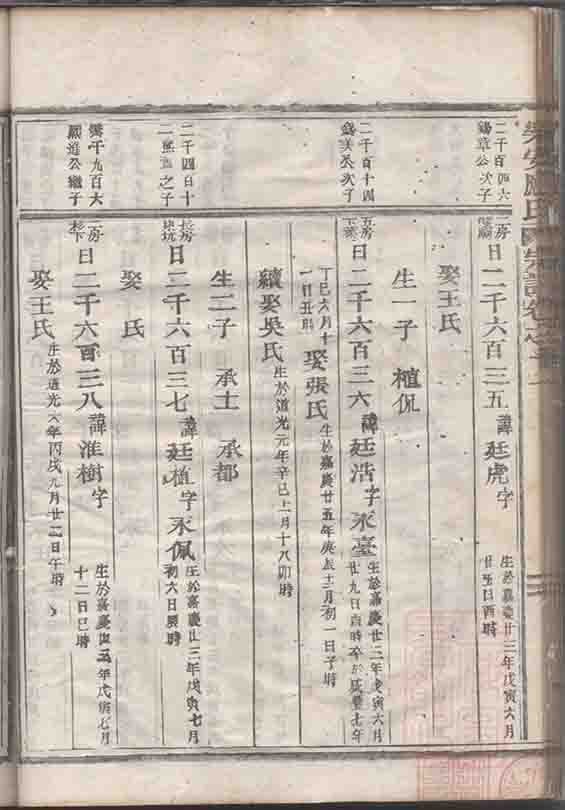 二千百四六
錫章公次子
二房
日二千六百三五 諱廷虎 字
生於嘉慶廿三年戊寅六月
廿五日酉時
娶王氏
生一子 植侃
二千百十四
錢美公次子
五房
日二千六百三六 諱廷浩 字永臺
生於嘉慶廿三年戊寅六月
廿九日酉時卒於咸豐七年
丁巳六月十
一日丑時
娶張氏
生於嘉慶廿五年庚辰十二月初一日子時
續娶吳氏
生於道光元年辛巳十一月十八卯時
生二子 承士 承都
二千四百十
二 之子
長房
日二千六百三七 諱廷植 字永佩
生於嘉慶廿三年戊寅七月
初六日辰時
娶 氏
千九百六
顯道公繼子
二房
日二千六百三八 諱淮樹 字
生於嘉慶廿三年戊寅七月
十二日巳時
娶王氏
生於道光六年丙戌九月廿二日午時